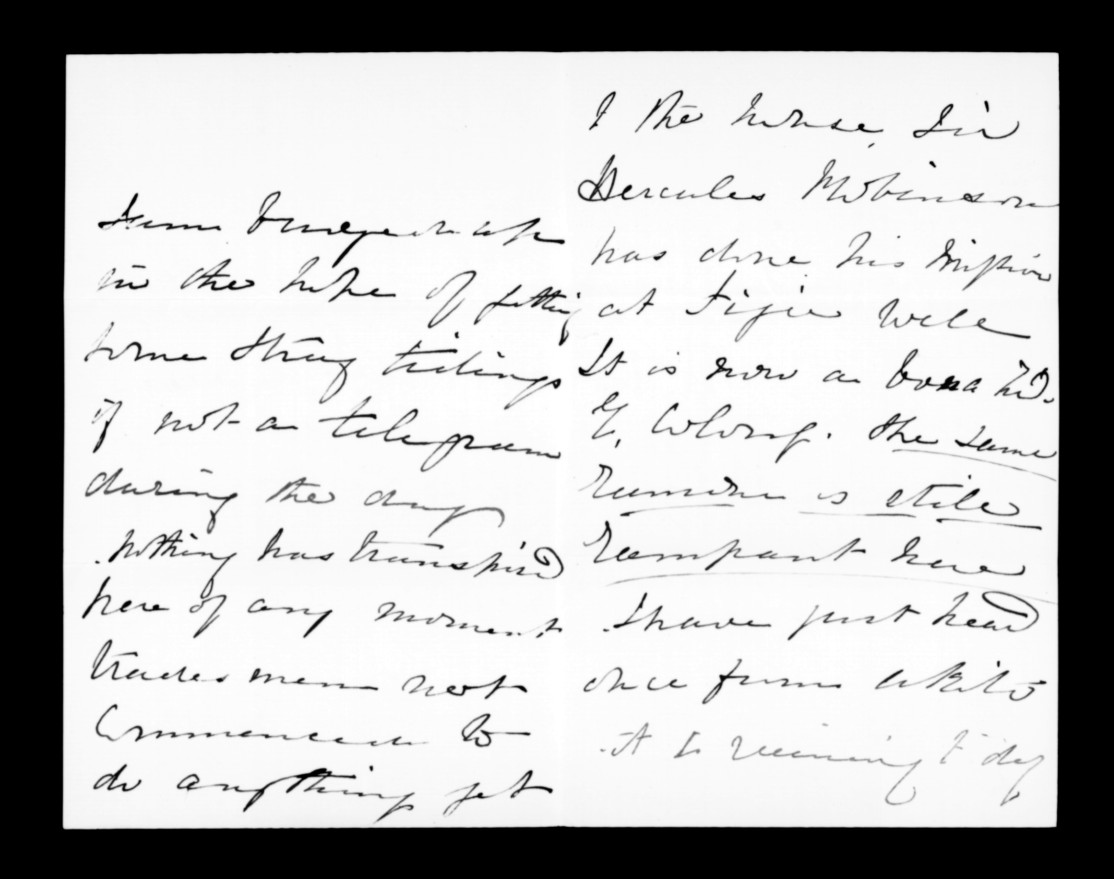 in the hope of getting
some stray tidings
if not a telegram
during the day
. Nothing has transpired
here of any moment
tradesmen not
commenced to
do anything yet
t the house, Sir
Hercules Robinson
has done his mission
at Figie well
It is now a bona fid.
Colony. the same
rumour is still
rampant here
. I have just heard
once from Akitio
. It is raining t'day